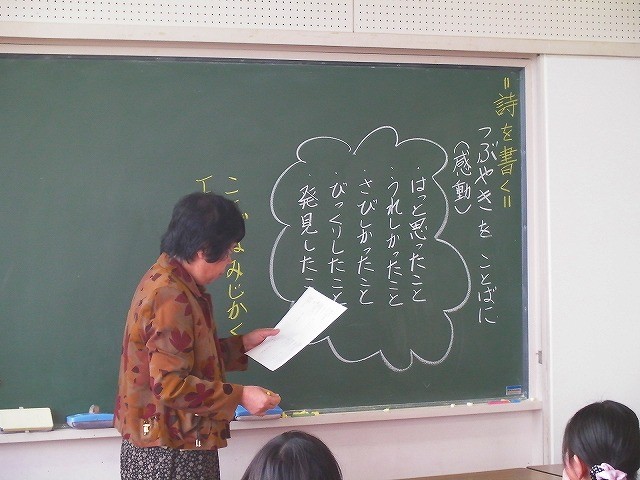 =詩を書く=
つぶやきを ことばに
(感動)
・はっと思ったこと
・うれしかったこと
・さびしかったこと
・びっくりしたこと
・発見したこ
みじかく